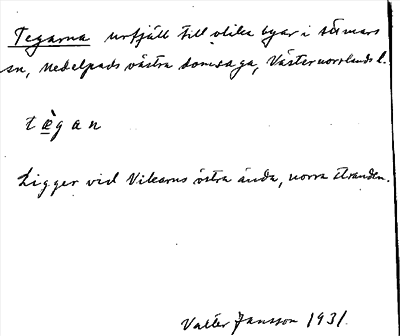 Tegarna urfjäll till olika byar i Stimars
sn, Medelpads västra domsaga, Västernorrlands l.
tæ̀gan
Ligger vid Vikarns östra ända, norra stranden.
Valter Jansson 1931.